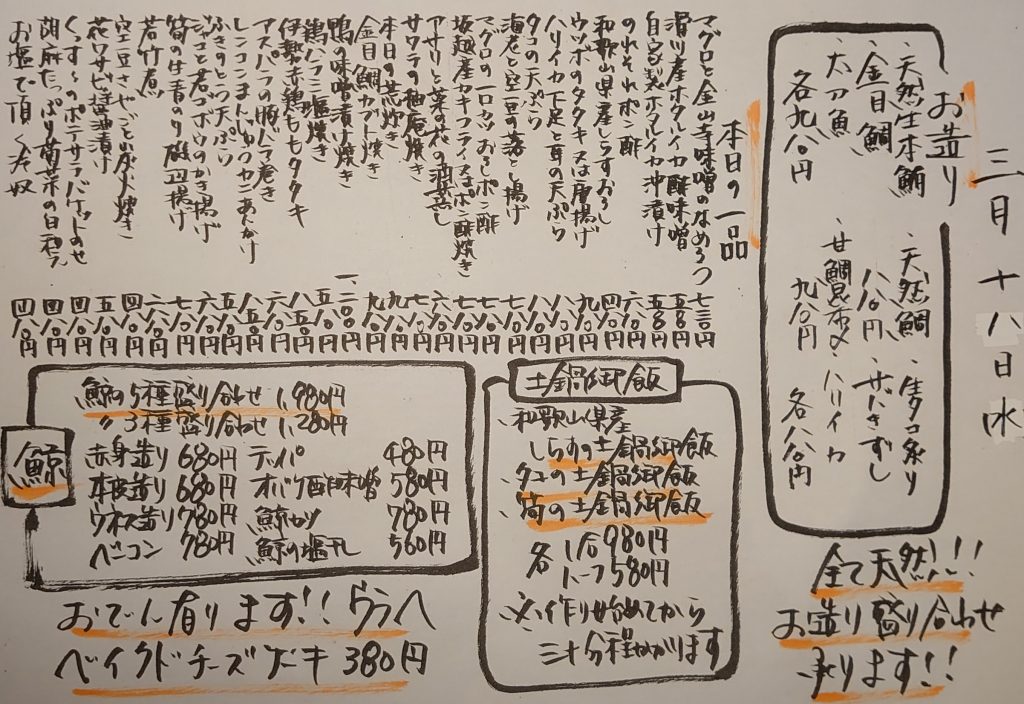 三月十八日水
お造り
・天然生本鮪
・金目鯛
・太刀魚
各九八〇円
・天然鯛
八八〇円
・甘鯛昆布〆
九八〇円
・生タコ炙り
・ハリイカ
各八八〇円
全て天然!!!
お造り盛り合わせ
承ります!!
本日の一品
マグロと金山寺味噌のなめろう 七三〇円
滑川産ホタルイカ酢味噌 五八〇円
自家製ホタルイカ沖漬け 五八〇円
のれそれポン酢 六八〇円
和歌山県産しらすおろし 四八〇円
ウツボのタタキ又は唐揚げ
ハリイカ下足と耳の天ぷら
タコの天ぷら
海老と空豆の落とし揚げ
マグロの一口カツおろしポン酢
坂越産カキフライ又はポン酢焼き
アサリと菜の花の酒蒸し
サワラの柚庵焼き
本日の荒炊き
金目鯛カブト焼き
鴨の味噌漬け焼き
鶏ハラミ塩焼き
伊勢赤鶏ももタタキ
アスパラの豚バラ巻き
レンコンまんじゅうカニあんかけ
ふきのとう天ぷら
ジャコと若ゴボウのかき揚げ
筍の生青のり磯辺揚げ
若竹煮
空豆さやごと炭火焼き
花ワサビ醤油漬け
くんすぅのポテサラバケットのせ
胡麻たっぷり菊菜の白和え
お塩で頂く冷奴
土鍋御飯
・和歌山県産
しらすの土鍋御飯
・タコの土鍋御飯
・筍の土鍋御飯
各 1合980円
ハーフ580円
※作り始めてから
三十分程かかります
鯨
鯨の5種盛り合わせ 1,980円
〃3種盛り合わせ 1,280円
赤身造り 680円 テッパ 480円
本皮造り 680円 オバケ酢味噌 580円
ウネス造り 780円 鯨カツ 780円
ベーコン 780円 鯨の塩干し 560円
おでん有ります!! ウラへ
ベイクドチーズケーキ 380円